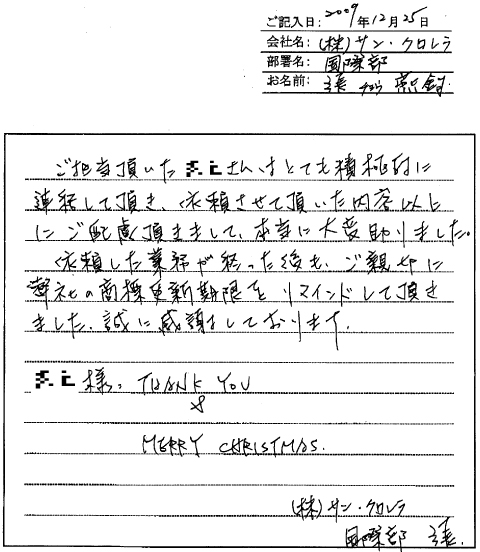 ご記入日: 2009年12月25日
会社名: (株)サン・クロレラ
部署名: 国際部
お名前: 張
ご担当頂いた さんはとても積極的に
連絡して頂き、依頼させて頂いた内容以上
にご配慮頂きまして、本当に大変助りました。
依頼した業務が終った後も、ご親切に
弊社の商標更新期限をリマインドして頂き
ました、誠に感謝しております.
様, THANK YOU
&
MERRY CHRISTMAS.
(株)サン・クロレラ
国際部 張.